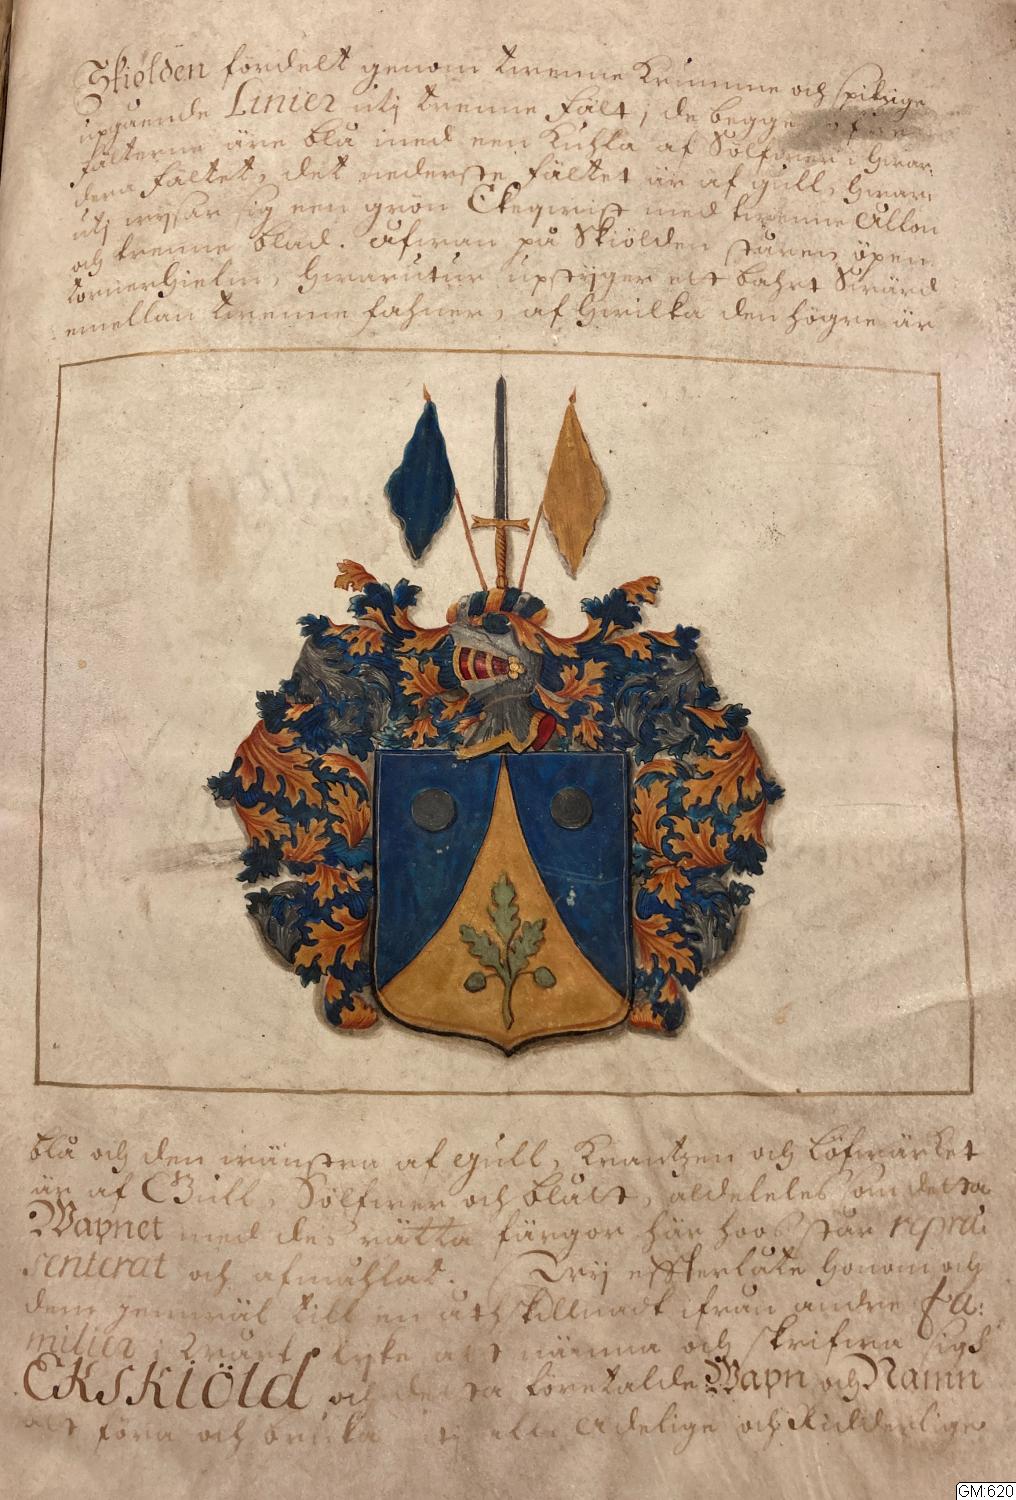 Skiölden fördelt genom twenne Krumme och spitzige
upgående Linier uti trenne fält, de begge öfre
fälterne äre blå med een Kuhla af Sölfwer i hwar,
dera fältet, det nederste fältet är af gull, hwar,
uti wysar sig een grön Ekeqwist med twenne Ållon
och trenne blad. Ofwan på Skiölden står en öpen
tornerhielm, hwarutur upstijger ett bahrt Swärd
emellan twenne fahner, af hwilka den högre är
blå och den wänstra af gull, Krantzen och Löfwärket
är af Gull, Sölfwer och blått, aldeles som detta
Wapnet med des rätta färgor här hoos står repræ:
senterat och afmåhlat. Wij effterlåte honom och
dem jemwäl till en åthskillnadt ifrån andre Fa:
milier i Wårt Rijke att nämna och skrifwa sigh
EKSKIÖLD och detta företalde Wapn och Namn
att föra och bruka uti alla Adelige och Ridderlige
GM:620